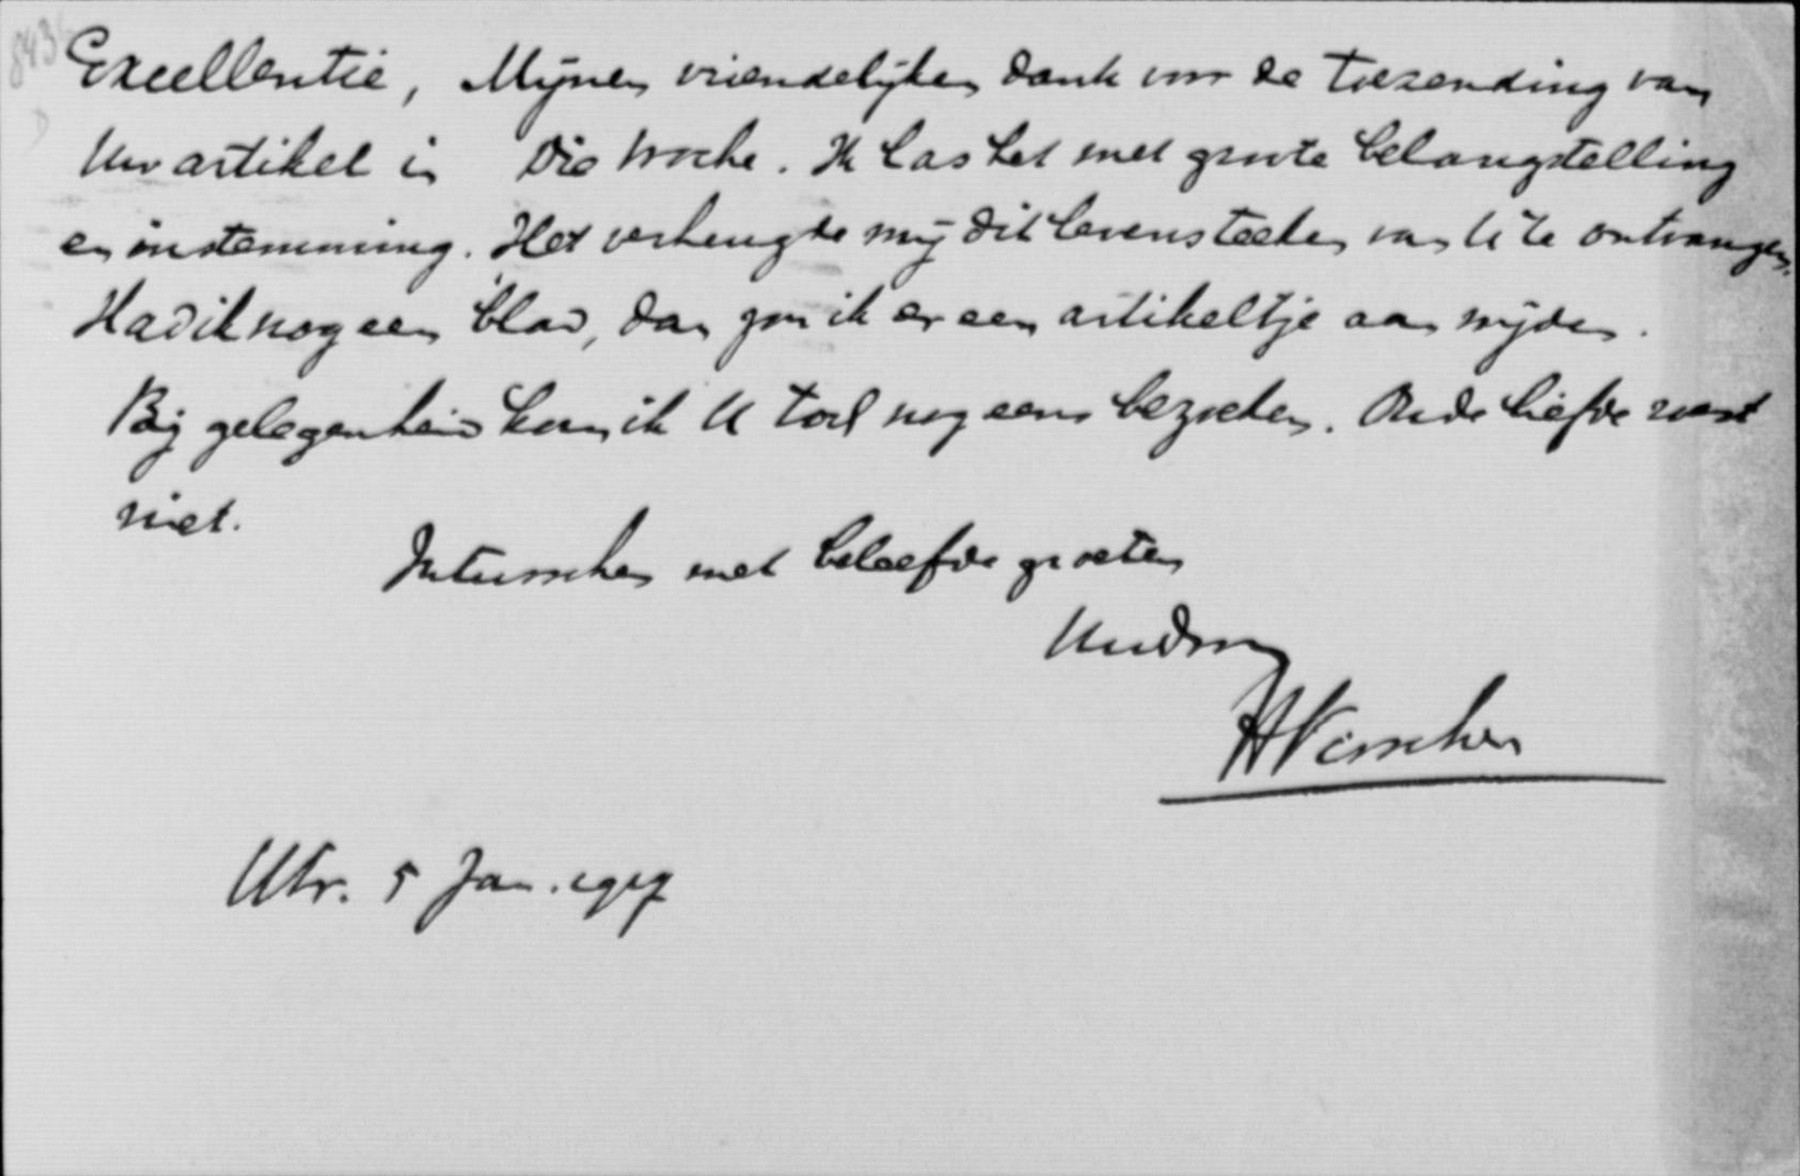 Excellentie, Mijnen vriendelijken dank voor de toezending van
Uw artikel in Die Woche. Ik las het met groote belangstelling
en instemming. Het verheugde mij dit levensteeken van U te ontvangen.
Had ik nog een blad, dan zou ik er een artikeltje aan wijden.
Bij gelegenheid kom ik U toch nog eens bezoeken. Oude liefde roest
niet.
Intusschen met beleefde groeten
Uwdw
HVisscher
Utr. 5 Jan.